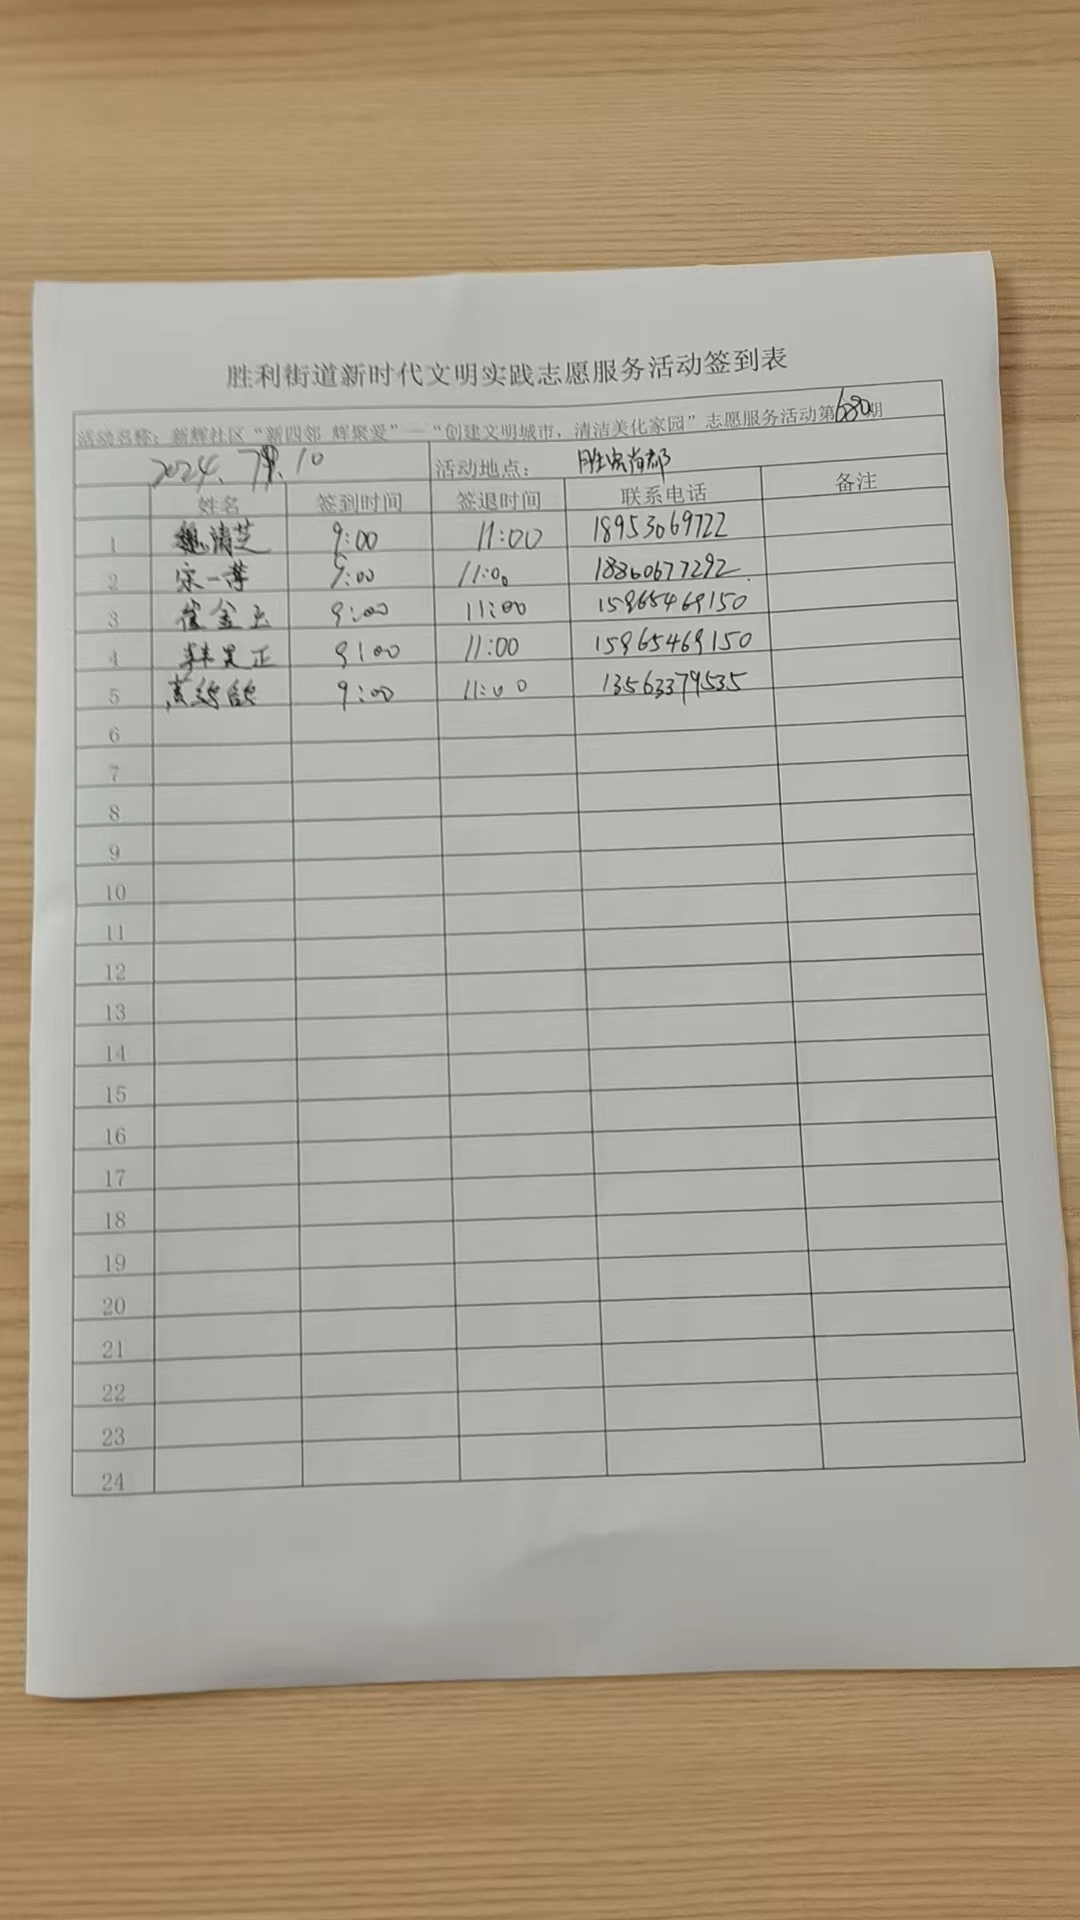 胜利街道新时代文明实践志愿服务活动签到表
活动名称：新辉社区“新四邻 辉聚爱”—“创建文明城市，清洁美化家园”志愿服务活动第680期
2024. 10 活动地点： 胜宏尚都
姓名 签到时间 签退时间 联系电话 备注
1 魏清芝 9:00 11:00 18953069722
2 宋一 9:00 11:00 18360677292
3 崔金玉 9:00 11:00 15965469150
4 韩昊正 9:00 11:00 15965469150
5 9:00 11:00 13563379535
6
7
8
9
10
11
12
13
14
15
16
17
18
19
20
21
22
23
24